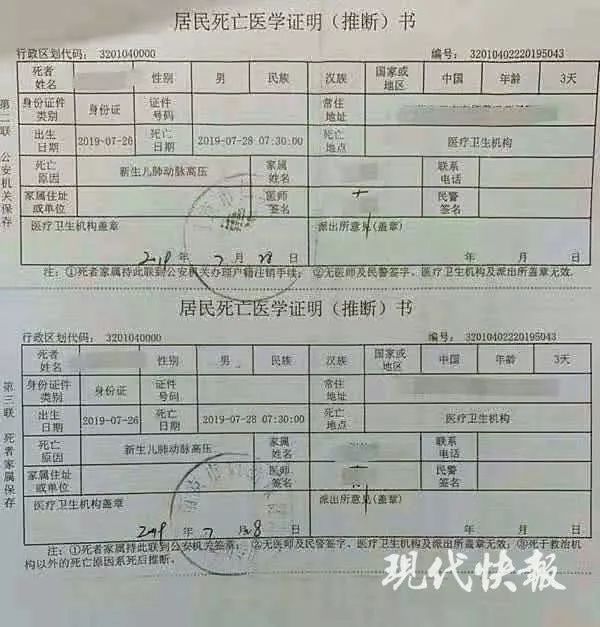 居民死亡医学证明（推断）书
行政区划代码：3201040000 编号：32010402220195043
死者姓名 性别 男 民族 汉族 国家或地区 中国 年龄 3天
身份证件类别 身份证 证件号码 常住地址
出生日期 2019-07-26 死亡日期 2019-07-28 07:30:00 死亡地点 医疗卫生机构
死亡原因 新生儿肺动脉高压 家属姓名 联系电话
家属住址或单位 医师签名 民警签名
医疗卫生机构盖章 派出所意见（盖章）
2019 年 7 月 28 日 年 月 日
第二联 公安机关保存
注：①死者家属持此联到公安机关办理户籍注销手续；②无医师及民警签字、医疗卫生机构及派出所盖章无效。
居民死亡医学证明（推断）书
行政区划代码：3201040000 编号：32010402220195043
死者姓名 性别 男 民族 汉族 国家或地区 中国 年龄 3天
身份证件类别 身份证 证件号码 常住地址
出生日期 2019-07-26 死亡日期 2019-07-28 07:30:00 死亡地点 医疗卫生机构
死亡原因 新生儿肺动脉高压 家属姓名 联系电话
家属住址或单位 医师签名 民警签名
医疗卫生机构盖章 派出所意见（盖章）
2019 年 7 月 28 日 年 月 日
第三联 死者家属保存
注：①死者家属持此联到公安机关签章；②无医师及民警签字、医疗卫生机构及派出所盖章无效；③死于救治机
构以外的死亡原因系死后推断。
现代快報